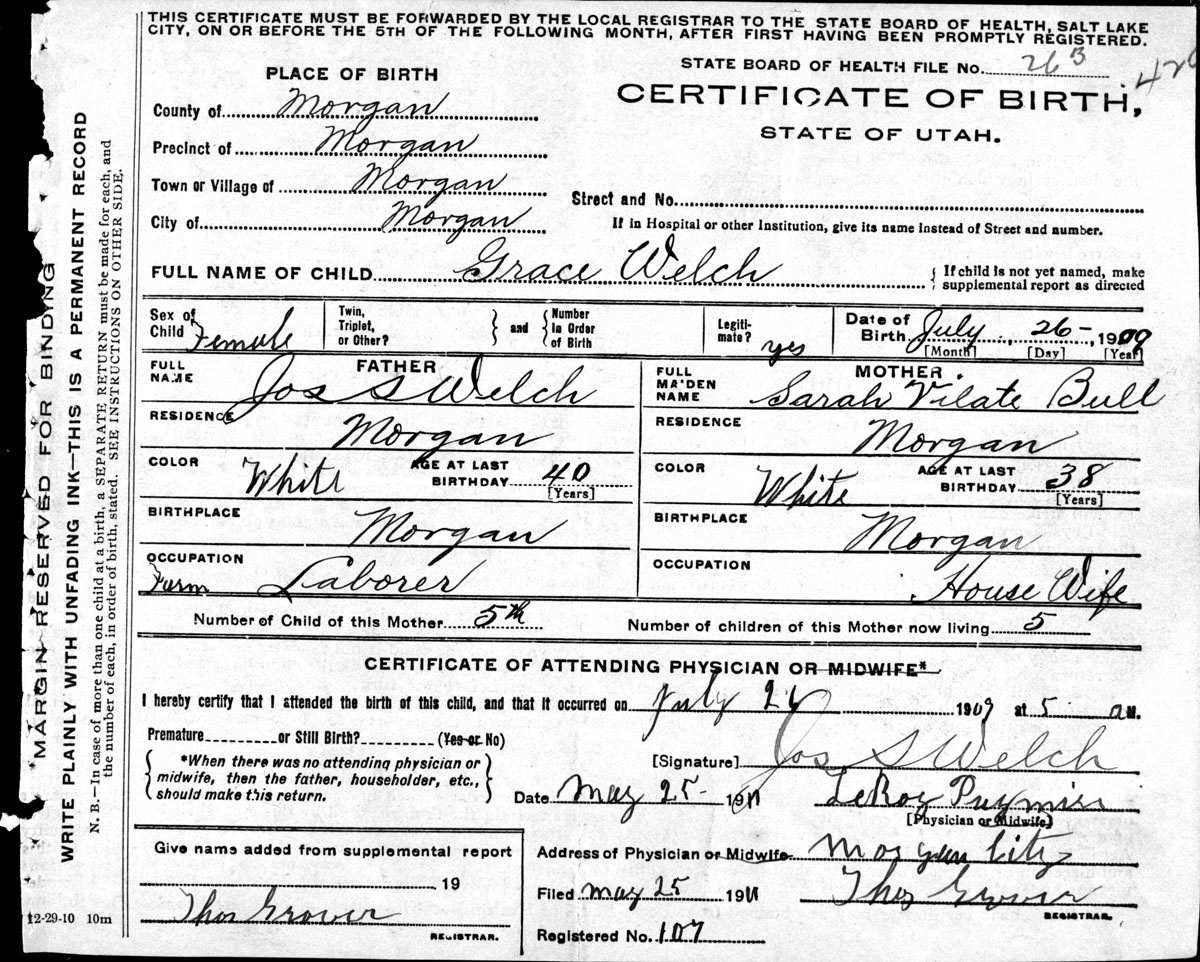 THIS CERTIFICATE MUST BE FORWARDED BY THE LOCAL REGISTRAR TO THE STATE BOARD OF HEALTH, SALT LAKE
CITY, ON OR BEFORE THE 5TH OF THE FOLLOWING MONTH, AFTER FIRST HAVING BEEN PROMPTLY REGISTERED.
STATE BOARD OF HEALTH FILE No. 26 B
426
CERTIFICATE OF BIRTH,
STATE OF UTAH.
PLACE OF BIRTH
County of Morgan
Precinct of Morgan
Town or Village of Morgan
City of Morgan
Street and No.
If in Hospital or other Institution, give its name instead of Street and number.
FULL NAME OF CHILD Grace Welch
{ If child is not yet named, make
supplemental report as directed
Sex of Child Female
Twin, Triplet, or Other? } and { Number in Order of Birth
Legitimate? yes
Date of Birth July 26 - 1909
[Month] [Day] [Year]
FATHER
FULL NAME Jos S Welch
RESIDENCE Morgan
COLOR White AGE AT LAST BIRTHDAY 40
[Years]
BIRTHPLACE Morgan
OCCUPATION
Farm Laborer
MOTHER.
FULL MAIDEN NAME Sarah Vilate Bull
RESIDENCE Morgan
COLOR White AGE AT LAST BIRTHDAY 38
[Years]
BIRTHPLACE Morgan
OCCUPATION
House Wife
Number of Child of this Mother 5th
Number of children of this Mother now living 5
CERTIFICATE OF ATTENDING PHYSICIAN OR MIDWIFE*
I hereby certify that I attended the birth of this child, and that it occurred on July 26 1909 at 5 a M.
Premature or Still Birth? (Yes or No)
{ *When there was no attending physician or
midwife, then the father, householder, etc.,
should make this return. }
[Signature] Jos S Welch
Date May 25 - 1911 LeRoy
[Physician or Midwife]
Address of Physician or Midwife Morgan City
Filed May 25 1911 Thos Grover
REGISTRAR.
Registered No. 107
Give name added from supplemental report
19
Thos Grover
REGISTRAR.
12-29-10 10m
MARGIN RESERVED FOR BINDING
WRITE PLAINLY WITH UNFADING INK—THIS IS A PERMANENT RECORD
N. B.—In case of more than one child at a birth, a SEPARATE RETURN must be made for each, and
the number of each, in order of birth, stated. SEE INSTRUCTIONS ON OTHER SIDE.